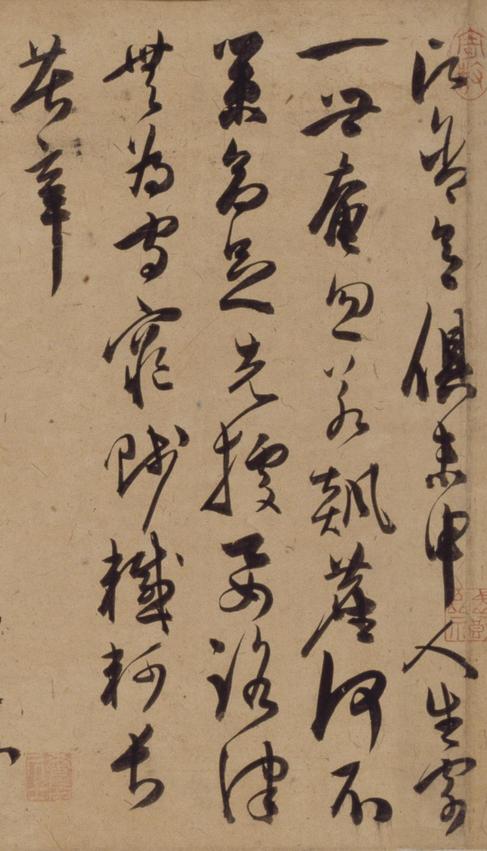 含意俱未申人生寄
一世奄忽若飆塵何不
策高足先據要路津
無為守窮賤轗軻長
苦辛